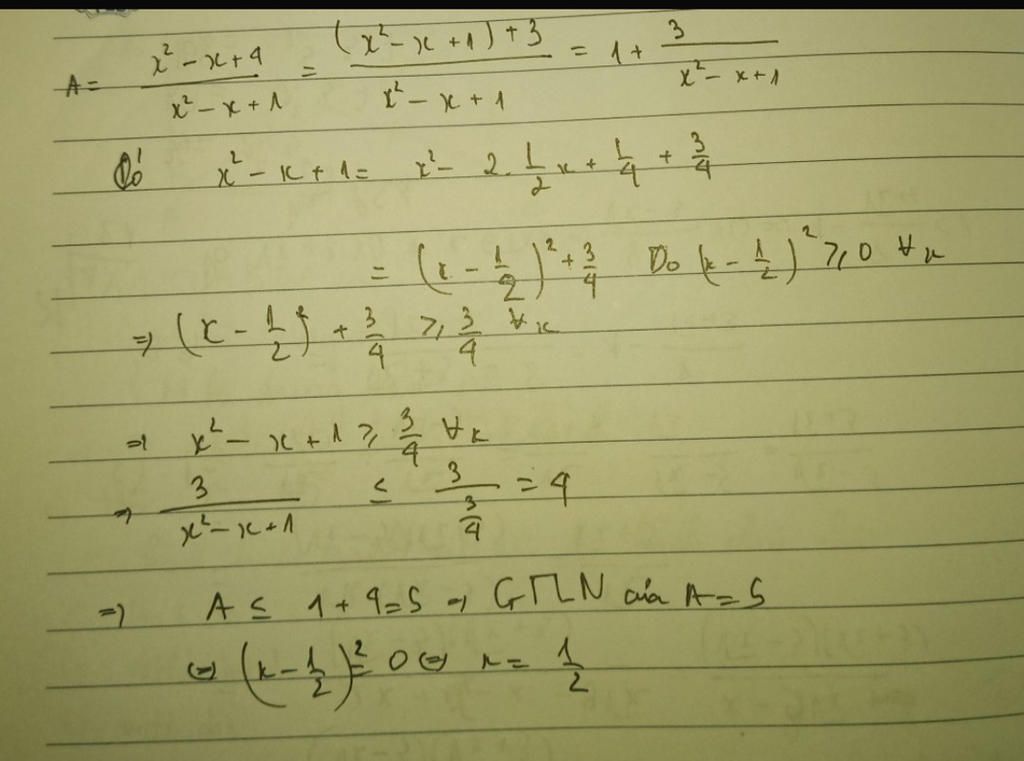 A = \frac{x^2 - x + 4}{x^2 - x + 1} = \frac{(x^2 - x + 1) + 3}{x^2 - x + 1} = 1 + \frac{3}{x^2 - x + 1}
Có x^2 - x + 1 = x^2 - 2.\frac{1}{2}x + \frac{1}{4} + \frac{3}{4}
= (x - \frac{1}{2})^2 + \frac{3}{4} Do (x - \frac{1}{2})^2 ≥ 0 ∀x
⇒ (x - \frac{1}{2})^2 + \frac{3}{4} ≥ \frac{3}{4} ∀x
⇒ x^2 - x + 1 ≥ \frac{3}{4} ∀x
⇒ \frac{3}{x^2 - x + 1} ≤ \frac{3}{\frac{3}{4}} = 4
⇒ A ≤ 1 + 4 = 5 ⇒ GTLN của A = 5
⇔ (x - \frac{1}{2})^2 = 0 ⇔ x = \frac{1}{2}